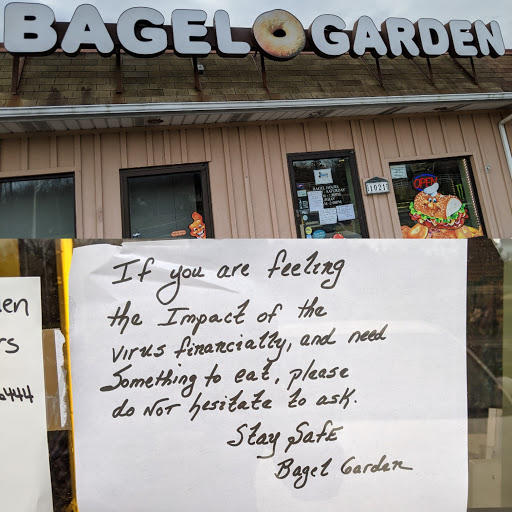 BAGEL GARDEN
OPEN
BAGEL HOURS
11021
If you are feeling
the Impact of the
virus financially, and need
Something to eat, please
do NOT hesitate to ask.
Stay Safe
Bagel Garden
en
rs
6444